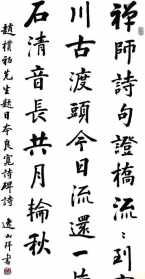 禪師詩句證橋流〻〻到
川古渡頭今日流還一片
石清音長共月輪秋
趙樸初先生題日本良寬詩碑詩 逸山拜書